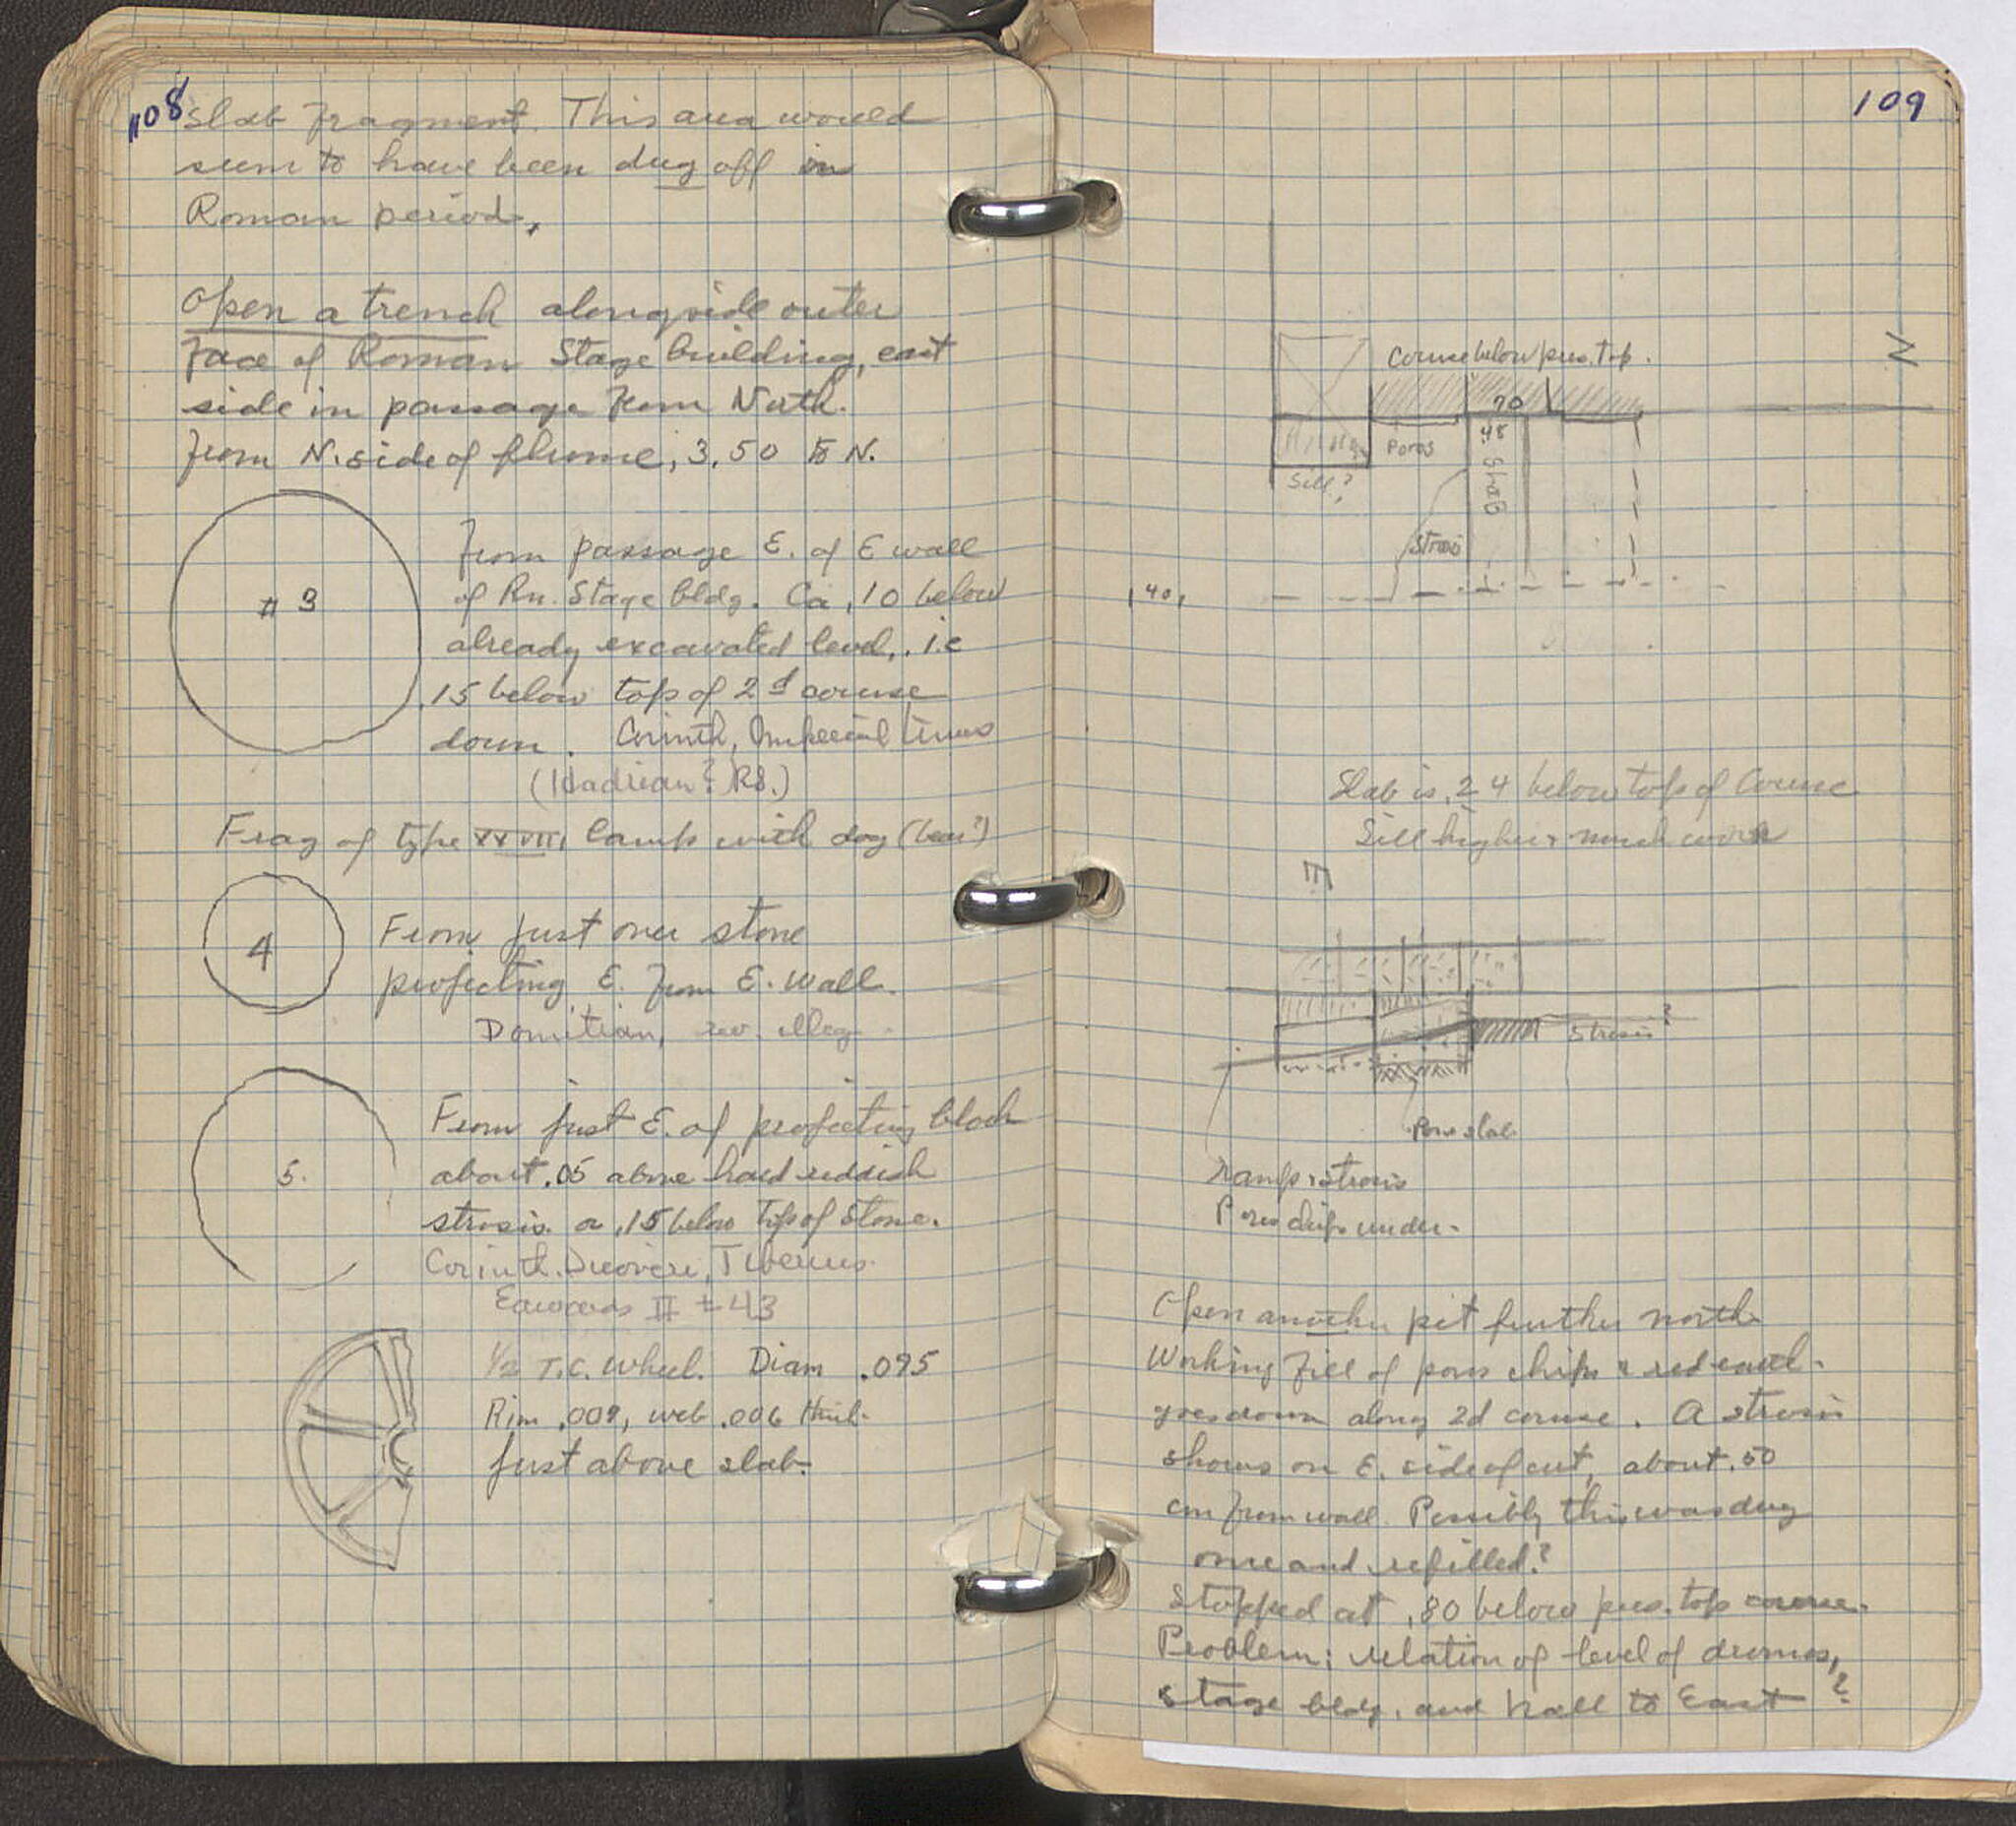 108
slab fragment. This area would
seem to have been dug off in
Roman period.
Open a trench alongside outer
face of Roman Stage building, east
side in passage from North.
From N. side of flume, 3.50 to N.
# 3
From passage E. of E wall
of Rn. Stage bldg. Ca .10 below
already excavated level, i.e
.15 below top of 2d course
down. Corinth, Imperial times
(Hadrian? RS.)
Frag of type XXVIII lamp with dog (bear?)
4
From just over stone
projecting E. from E. wall.
Domitian, rev. illeg.
5.
From just E. of projecting block
about .05 above hard reddish
strosis or .15 below top of stone.
Corinth. Duoviri, Tiberius.
Edwards II # 43
1/2 T.C. Wheel. Diam .095
Rim .009, web .006 thick.
Just above slab.
109
N
Course below pres. top.
70
Poros
.48
Slab
Sill?
Strosis
.40
Slab is .24 below top of Course
Sill higher & much worn
E
Strosis ?
Poros slab
ramp strosis
Poros chips under.
Open another pit further north
Working fill of poros chips & red earth.
goes down along 2d course. A strosis
shows on E. side of cut, about .50
cm from wall. Possibly this was dug
once and refilled?
Stopped at .80 below pres. top course.
Problem: relation of level of dromos,
stage bldg. and hall to East ?